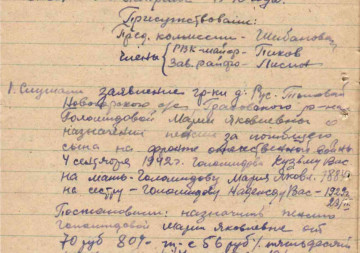 Присутствовали:
Пред. комиссии - Шибанова,
члены РВК - майор - Пиков
Зав. райфо - Лисин
1. Слушали заявление гр-ки д. Рус.
Новогорского с/сов Граховского р-на
Голомидовой Марии Яковлевной о
назначении пенсии за погибшего
сына на фронте отечественной войны
4 сентября 1942 г. Голомидов Кузьму Вас
на мать - Голомидову Мария Яковл. 1884
на сестру - Голомидову Надежду Вас - 1929
Постановили: назначить пенсию
Голомидовой Марии Яковлевне от
70 руб 80% т-с 56 руб / пятьдесят